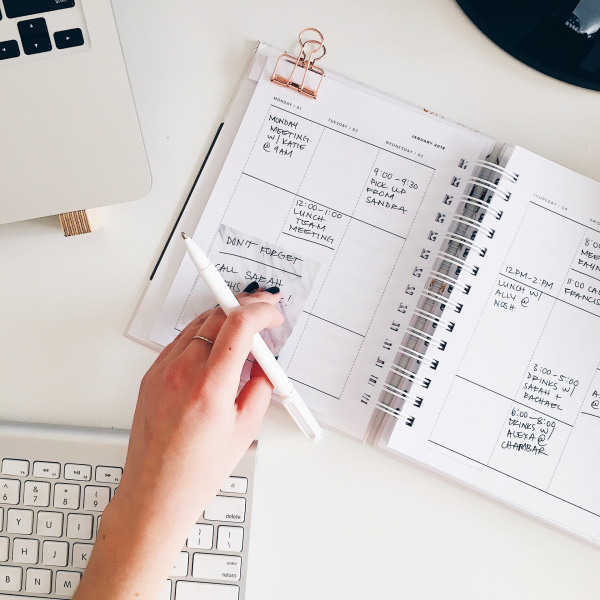 JANUARY 2018
MONDAY / 01
TUESDAY / 02
WEDNESDAY / 03
MONDAY
MEETING
W/ KATIE
@ 9AM
9:00-9:30
PICK UP
FROM
SANDRA
12:00-1:00
LUNCH
TEAM
MEETING
DON'T FORGET
CALL SARAH
THIS
!
THURSDAY / 04
12PM-2PM
LUNCH W/
ALLY @
NOSH
3:00-5:00
DRINKS W/
SARAH +
RACHAEL
6:00-8:00
DRINKS W/
ALEXA @
CHAMBAR
8:00
11:00
6
&
7
*
8
(
9
Y
U
I
H
J
K
B
N
M
delete
enter
return